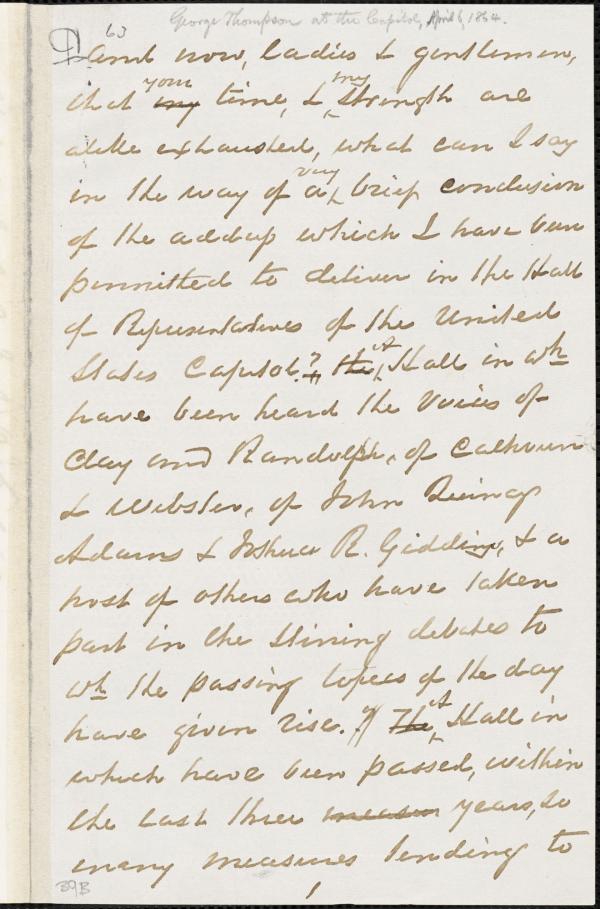 George Thompson at the Capitol, April 6, 1864.
63
And now, ladies & gentlemen,
that my your time, & my strength are
alike exhausted, what can I say
in the way of a very brief conclusion
of the address which I have been
permitted to deliver in the Hall
of Representatives of the United
States Capitol? the A Hall in wh
have been heard the voices of
Clay and Randolph, of Calhoun
& Webster, of John Quincy
Adams & Joshua R. Giddings, & a
host of others who have taken
part in the stirring debates to
wh the passing topics of the day
have given rise. The A Hall in
which have been passed, within
the last three measures years, so
many measures tending to
39B